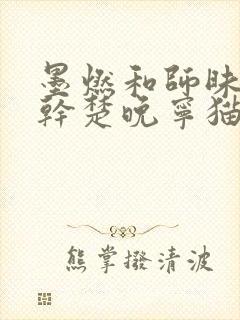 墨燃和師昧
幹楚晚寧猫
熊掌撥清波